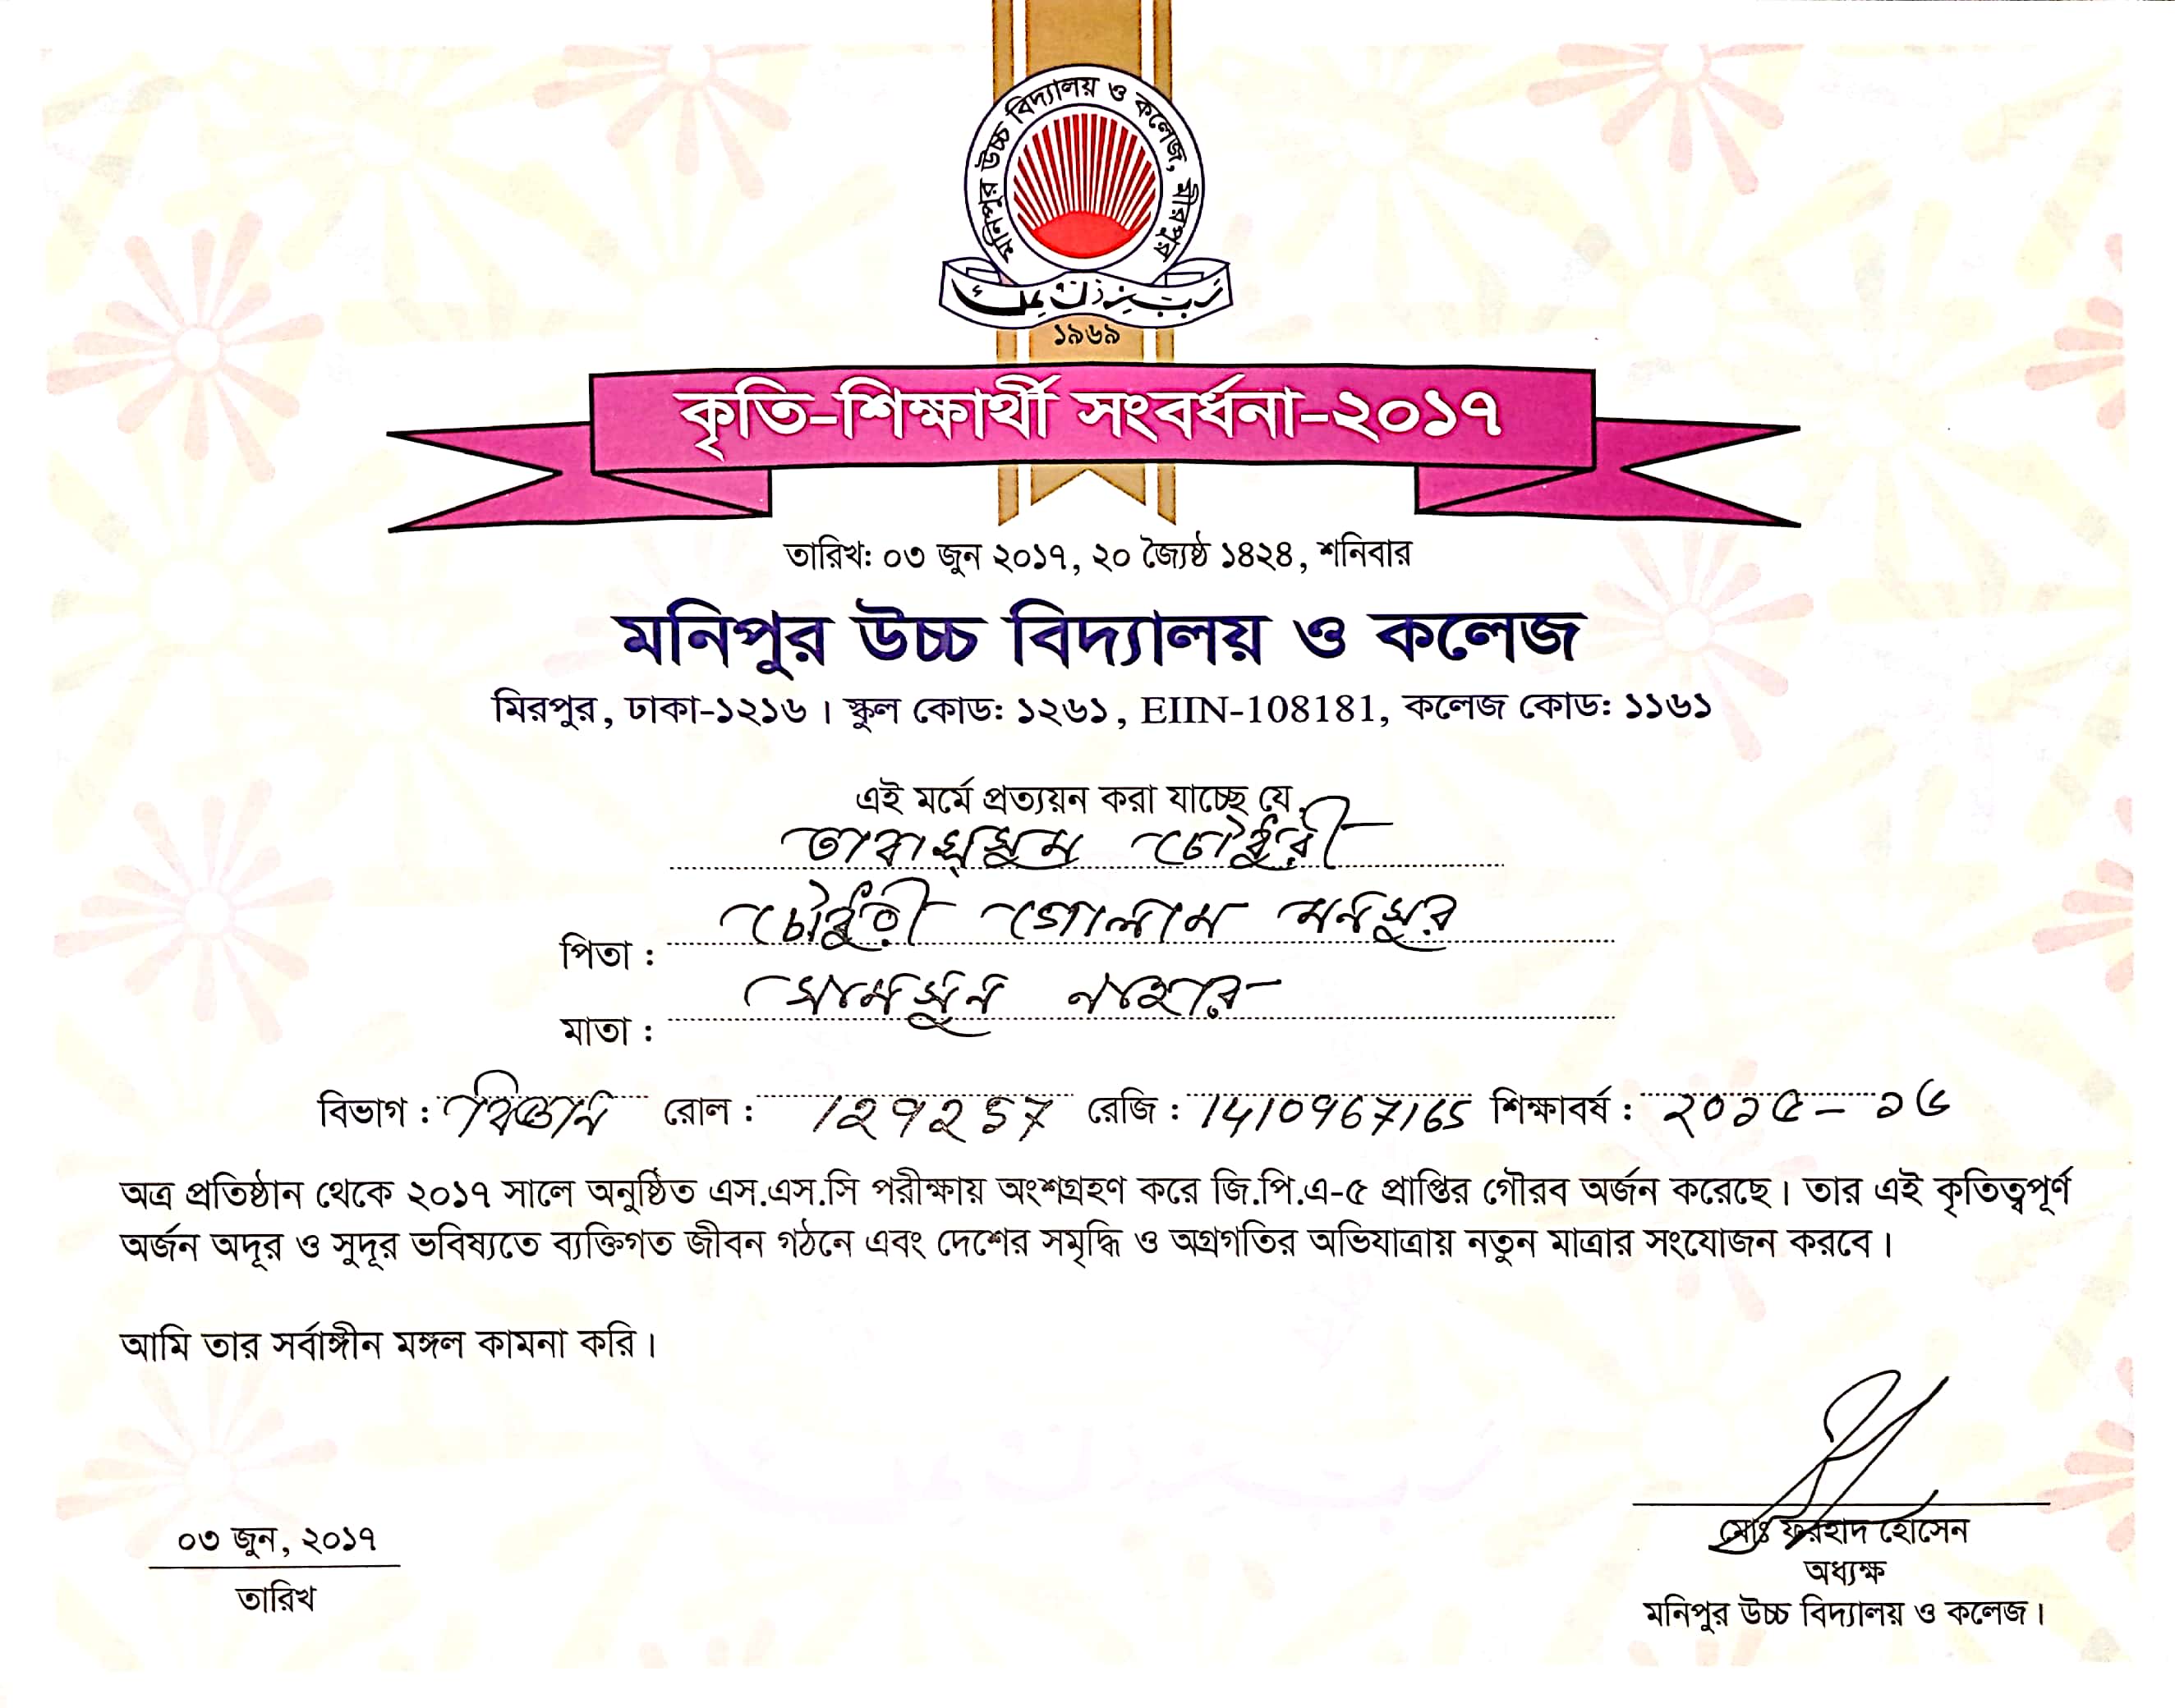 মনিপুর উচ্চ বিদ্যালয় ও কলেজ, মীরপুর
১৯৬৯
কৃতি-শিক্ষার্থী সংবর্ধনা-২০১৭
তারিখ: ০৩ জুন ২০১৭, ২০ জ্যৈষ্ঠ ১৪২৪, শনিবার
মনিপুর উচ্চ বিদ্যালয় ও কলেজ
মিরপুর, ঢাকা-১২১৬। স্কুল কোড: ১২৬১, EIIN-108181, কলেজ কোড: ১১৬১
এই মর্মে প্রত্যয়ন করা যাচ্ছে যে,
তাবাস্সুম চৌধুরী
পিতা : চৌধুরী গোলাম মনসুর
মাতা : নাহার
বিভাগ : বিজ্ঞান রোল : রেজি : 1410967165 শিক্ষাবর্ষ : ২০১৫-১৬
অত্র প্রতিষ্ঠান থেকে ২০১৭ সালে অনুষ্ঠিত এস.এস.সি পরীক্ষায় অংশগ্রহণ করে জি.পি.এ-৫ প্রাপ্তির গৌরব অর্জন করেছে। তার এই কৃতিত্বপূর্ণ
অর্জন অদূর ও সুদূর ভবিষ্যতে ব্যক্তিগত জীবন গঠনে এবং দেশের সমৃদ্ধি ও অগ্রগতির অভিযাত্রায় নতুন মাত্রার সংযোজন করবে।
আমি তার সর্বাঙ্গীন মঙ্গল কামনা করি।
০৩ জুন, ২০১৭
তারিখ
মোঃ ফরহাদ হোসেন
অধ্যক্ষ
মনিপুর উচ্চ বিদ্যালয় ও কলেজ।